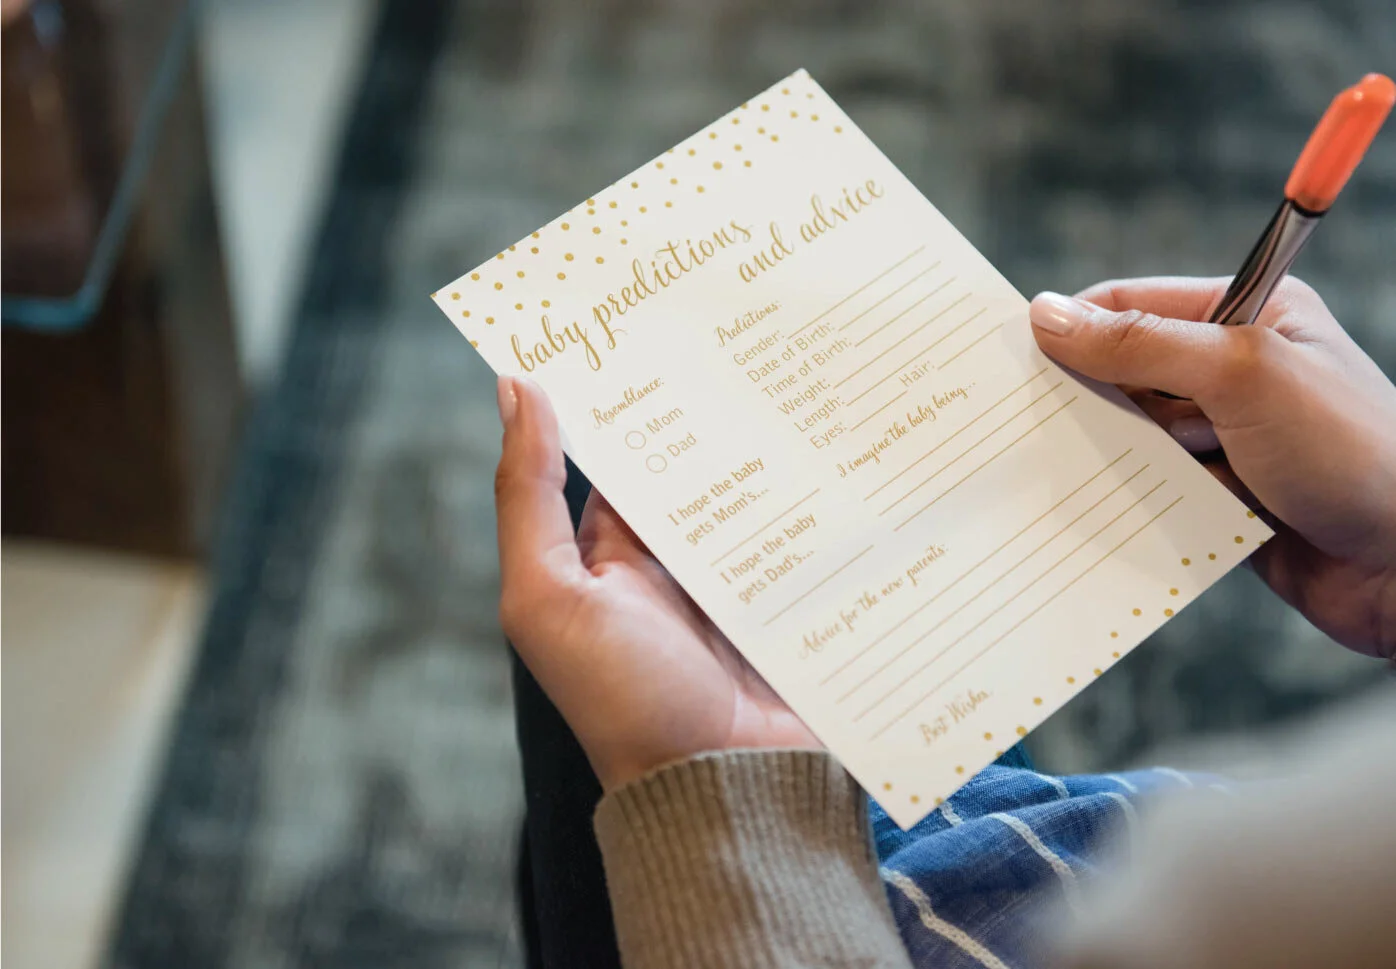 baby predictions
and advice
Resemblance:
Mom
Dad
I hope the baby
gets Mom's...
I hope the baby
gets Dad's...
Predictions:
Gender:
Date of Birth:
Time of Birth:
Weight:
Length:
Eyes: Hair:
I imagine the baby being...
Advice for the new parents:
Best Wishes